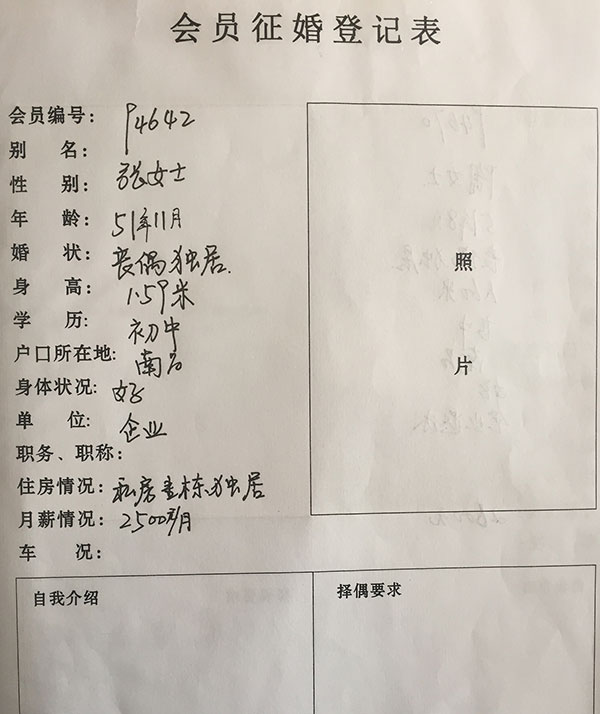 会员征婚登记表
会员编号： P4642
别 名：
性 别： 张女士
年 龄： 51年11月
婚 状： 丧偶独居.
身 高： 1.59米
学 历： 初中
户口所在地： 南
身体状况： 好
单 位： 企业
职务、职称：
住房情况： 私房 栋独居
月薪情况： 2500元/月
车 况：
照
片
自我介绍
择偶要求